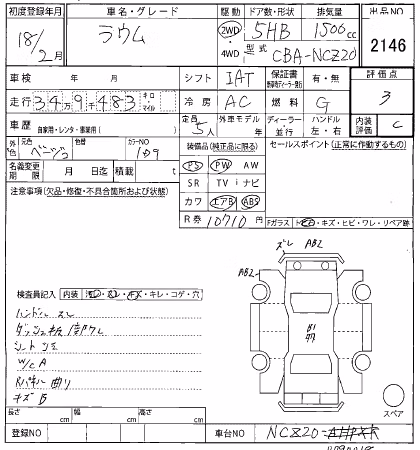 初度登録年月 車名・グレード 駆動 ドア数・形状 排気量 出品NO
18/2月 ラウム 2WD 5HB 1500cc 2146
4WD 型式 CBA-NCZ20
車検 年 月 シフト IAT 保証書 有・無 評価点
走行 34万9千483 キロ・マイル 冷房 AC 燃料 G 3
車歴 自家用・レンタ・事業用( ) 定員 5人 外車モデル 年 ディーラー・並行 ハンドル 左・右 内装評価 C
外色 元色 ベージュ 色替 カラーNO 装備品(純正品に限る) セールスポイント(正常に作動するもの)
名義変更期限 月 日迄 積載 t PS PW AW
注意事項(欠品・修復・不具合箇所および状態) SR TV ナビ
カワ エアB ABS
R券 10710円 Fガラス
ズレ AB2
AB2
検査員記入 内装
ハンドルスレ
シート
W/C A
Rパネル曲り
キズ B
長さ cm 幅 cm 高さ cm
スペア
登録NO 車台NO NCZ20-